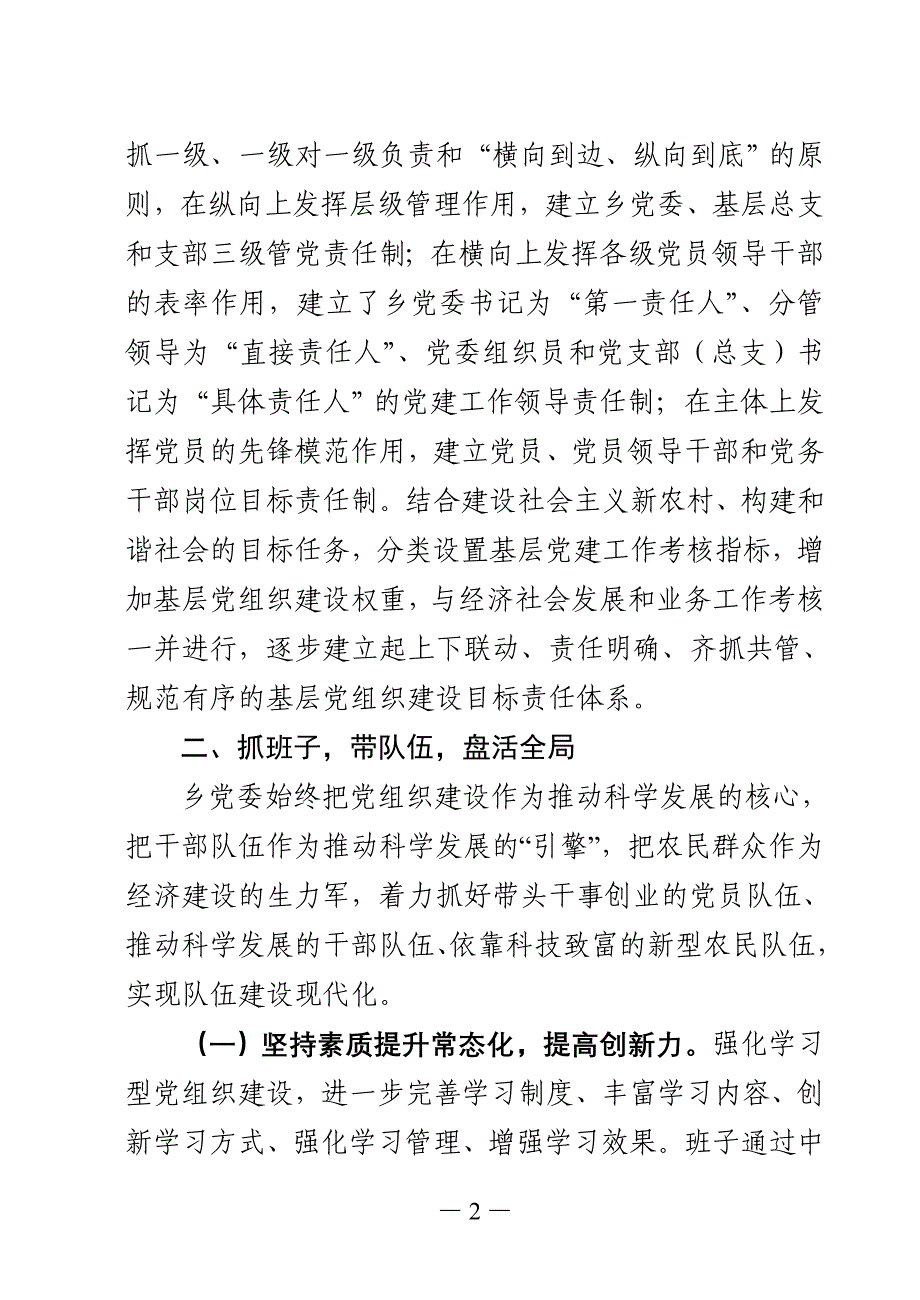 抓一级、一级对一级负责和“横向到边、纵向到底”的原
则，在纵向上发挥层级管理作用，建立乡党委、基层总支
和支部三级管党责任制；在横向上发挥各级党员领导干部
的表率作用，建立了乡党委书记为“第一责任人”、分管
领导为“直接责任人”、党委组织员和党支部（总支）书
记为“具体责任人”的党建工作领导责任制；在主体上发
挥党员的先锋模范作用，建立党员、党员领导干部和党务
干部岗位目标责任制。结合建设社会主义新农村、构建和
谐社会的目标任务，分类设置基层党建工作考核指标，增
加基层党组织建设权重，与经济社会发展和业务工作考核
一并进行，逐步建立起上下联动、责任明确、齐抓共管、
规范有序的基层党组织建设目标责任体系。
二、抓班子，带队伍，盘活全局
乡党委始终把党组织建设作为推动科学发展的核心，
把干部队伍作为推动科学发展的“引擎”，把农民群众作为
经济建设的生力军，着力抓好带头干事创业的党员队伍、
推动科学发展的干部队伍、依靠科技致富的新型农民队伍，
实现队伍建设现代化。
（一）坚持素质提升常态化，提高创新力。强化学习
型党组织建设，进一步完善学习制度、丰富学习内容、创
新学习方式、强化学习管理、增强学习效果。班子通过中
— 2 —